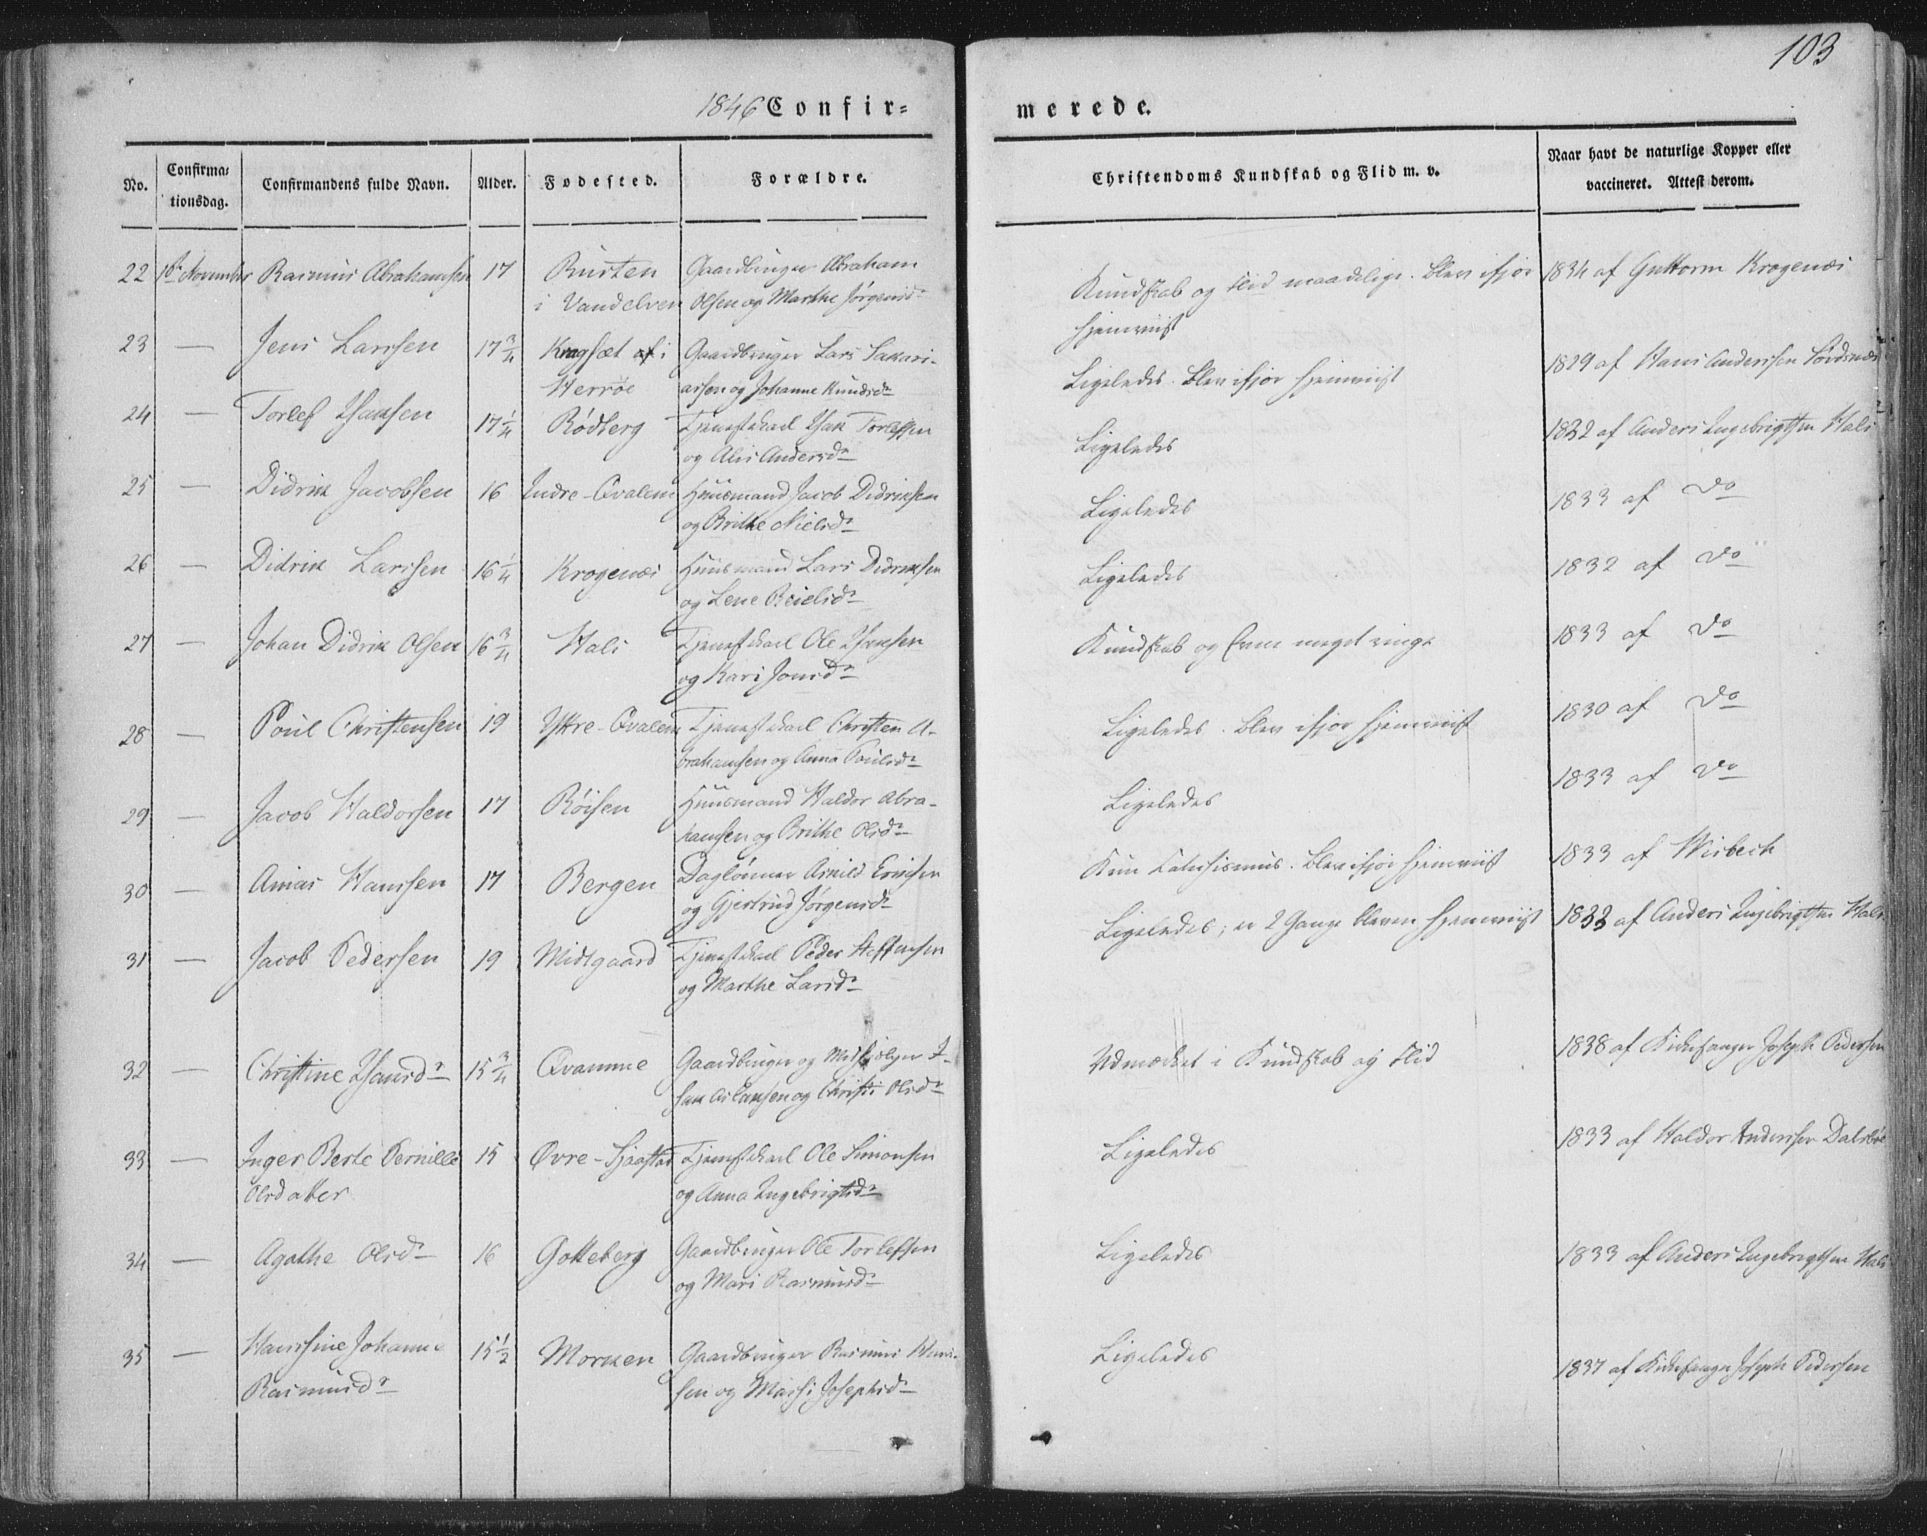 103
1846 Confir=
merede.
No.
Confirma=
tionsdag.
Confirmandens fulde Navn.
Alder.
Fødested.
Forældre.
Christendoms Kundskab og Flid m. v.
Naar havt de naturlige Kopper eller
vaccineret. Attest derom.
22 1ste November Rasmus Abrahamsen 17 Rusten Gaardbruger Abraham
i Vandelven Olsen og Marthe Jørgensdr
Kundskab og Flid maadelige. Blev ifjor 1834 af Guttorm Krogenæs
hjemviist
23 — Jens Larssen 17 3/4 Kragsæt i Gaardbruger Lars Sakari-
Herrøe assen og Johanne Knudsdr
Ligeledes. Blev ifjor hjemviist 1829 af Hans Anderssen
24 — Torlef Isaksen 17 1/4 Rødberg Tjenestekarl Isak Torlefsen
og Alis Andersdr
Ligeledes 1832 af Anders Ingebrigtsen Hals
25 — Didrik Jacobsen 16 Indre-Qvalem Huusmand Jacob Didriksen
og Brithe Nielsdr
Ligeledes 1833 af do
26 — Didrik Larssen 16 1/4 Krogenæs Huusmand Lars Didriksen
og Lene
Ligeledes 1832 af do
27 — Johan Didrik Olsen 16 3/4 Hals Tjenestekarl Ole Isaksen
og Kari Jonsdr
Kundskab og Evne meget ringe 1833 af do
28 — Poul Christensen 19 Yttre-Qvalem Tjenestekarl Christen A-
brahamsen og Anna Poulsdr
Ligeledes. Blev ifjor hjemviist 1830 af do
29 — Jacob Haldorsen 17 Røisen Huusmand Haldor Abra-
hamsen og Brithe Olsdr
Ligeledes 1833 af do
30 — Anias Hanssen 17 Bergen Daglønner
og Gjertrud Jørgensdr
Kun Katechismus. Blev ifjor hjemviist 1833 af Wisbech
31 — Jacob Pedersen 19 Midtgaard Tjenestekarl Peder Steffensen
og Marthe Larsdr
Ligeledes; er 2 Gange bleven hjemviist 1833 af Anders Ingebrigtsen Hals
32 — Christine Isaksdr 15 3/4 Qvamme Gaardbruger og Medhjelper I-
sak Aslaksen og Christi Olsdr
Udmærket i Kundskab og Flid 1838 af Kirkesanger Joseph Pedersen
33 — Inger Berte Pernille 15 Øvre-Fjaastad Tjenestekarl Ole Simonsen
Olsdatter og Anna Ingebrigtsdr
Ligeledes 1833 af Haldor Anderssen Dalsbøe
34 — Agathe Olsdr 16 Gotteberg Gaardbruger Ole Torlefsen
og Mari Rasmusdr
Ligeledes 1833 af Anders Ingebrigtsen Hals
35 — Hanssine Johanne 15 1/2 Morken Gaardbruger Rasmus Hans-
Rasmusdr sen og Massi Josephsdr
Ligeledes 1837 af Kirkesanger Joseph Pedersen